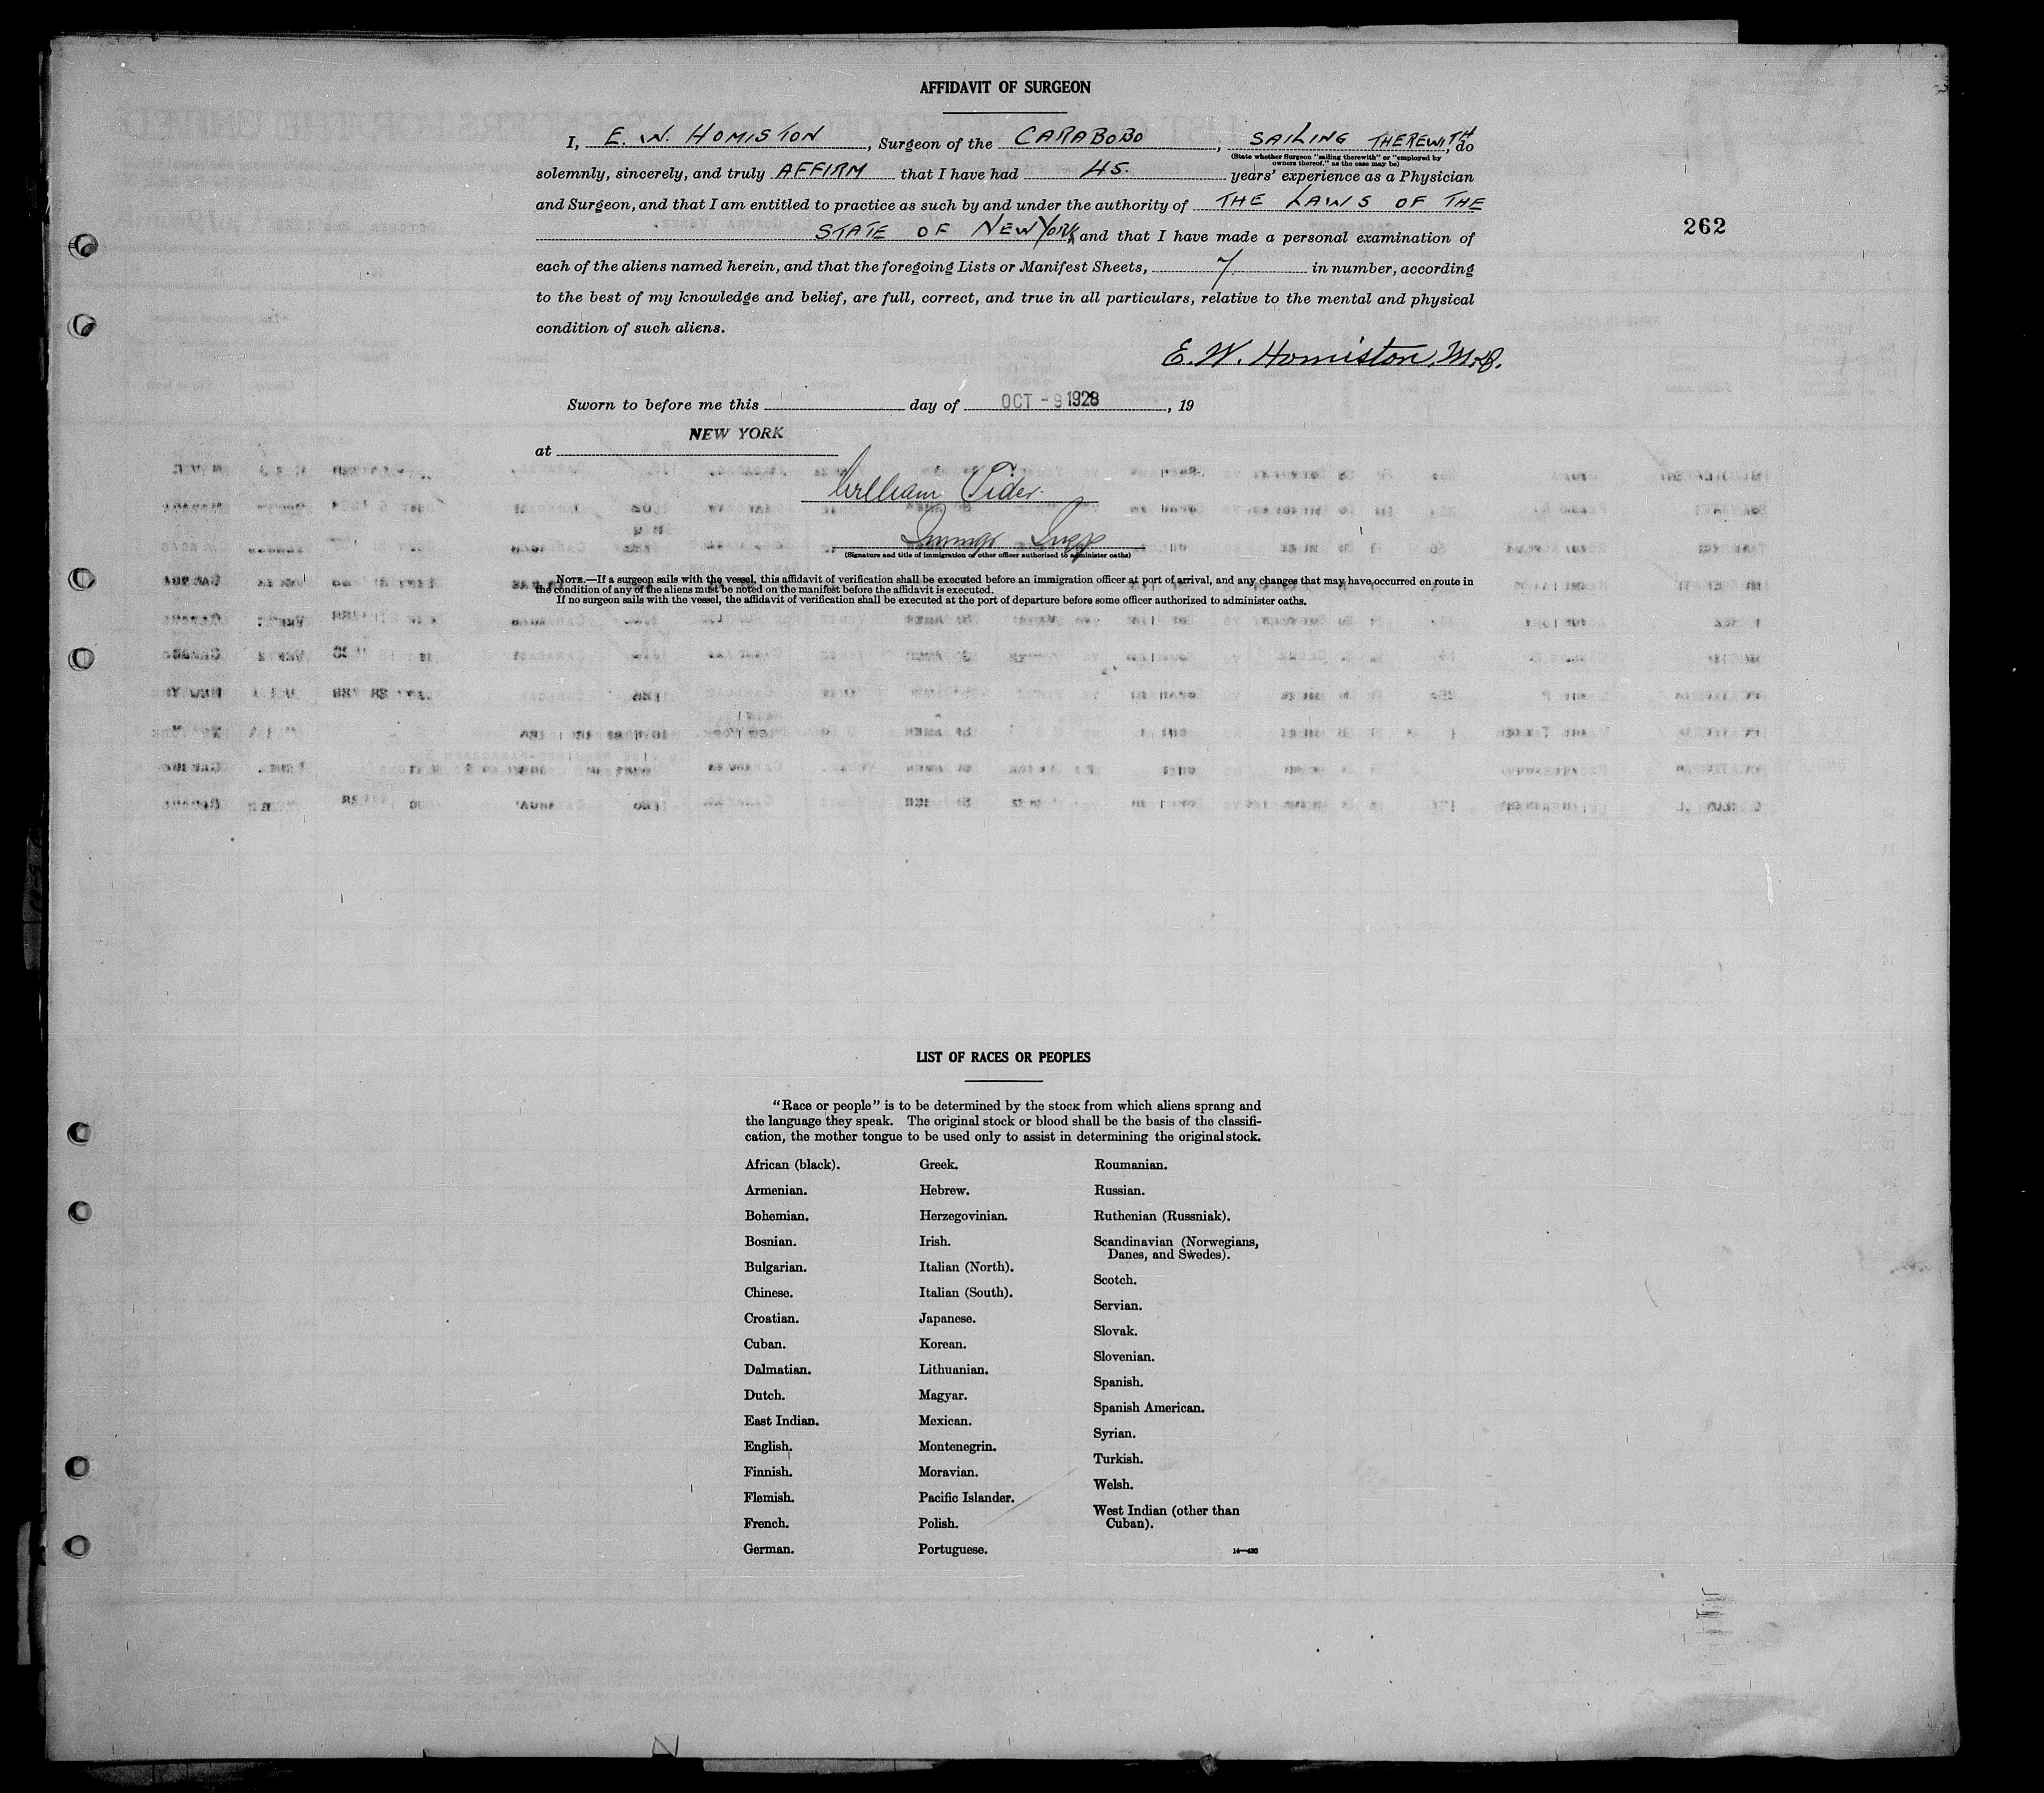 AFFIDAVIT OF SURGEON
I, E. W. HOMISTON, Surgeon of the CARABOBO, SAILING THEREWITH, do
(State whether Surgeon "sailing therewith" or "employed by
owners thereof," as the case may be)
solemnly, sincerely, and truly AFFIRM that I have had 45. years' experience as a Physician
and Surgeon, and that I am entitled to practice as such by and under the authority of THE LAWS OF THE
STATE OF NEW YORK, and that I have made a personal examination of
262
each of the aliens named herein, and that the foregoing Lists or Manifest Sheets, 7 in number, according
to the best of my knowledge and belief, are full, correct, and true in all particulars, relative to the mental and physical
condition of such aliens.
E. W. Homiston, M.D.
Sworn to before me this day of OCT - 9 1928, 19
NEW YORK
at
William
(Signature and title of immigration or other officer authorized to administer oaths)
NOTE.—If a surgeon sails with the vessel, this affidavit of verification shall be executed before an immigration officer at port of arrival, and any changes that may have occurred en route in
the condition of any of the aliens must be noted on the manifest before the affidavit is executed.
If no surgeon sails with the vessel, the affidavit of verification shall be executed at the port of departure before some officer authorized to administer oaths.
LIST OF RACES OR PEOPLES
"Race or people" is to be determined by the stock from which aliens sprang and
the language they speak. The original stock or blood shall be the basis of the classifi-
cation, the mother tongue to be used only to assist in determining the original stock.
African (black).
Armenian.
Bohemian.
Bosnian.
Bulgarian.
Chinese.
Croatian.
Cuban.
Dalmatian.
Dutch.
East Indian.
English.
Finnish.
Flemish.
French.
German.
Greek.
Hebrew.
Herzegovinian.
Irish.
Italian (North).
Italian (South).
Japanese.
Korean.
Lithuanian.
Magyar.
Mexican.
Montenegrin.
Moravian.
Pacific Islander.
Polish.
Portuguese.
Roumanian.
Russian.
Ruthenian (Russniak).
Scandinavian (Norwegians,
Danes, and Swedes).
Scotch.
Servian.
Slovak.
Slovenian.
Spanish.
Spanish American.
Syrian.
Turkish.
Welsh.
West Indian (other than
Cuban).